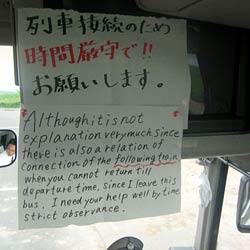 列車接続のため
時間厳守で!!
お願いします。
Although it is not
explanation very much since
there is also a relation of
connection of the following train,
when you cannot return till
departure time, since I leave this
bus. I need your help well by time
strict observance.